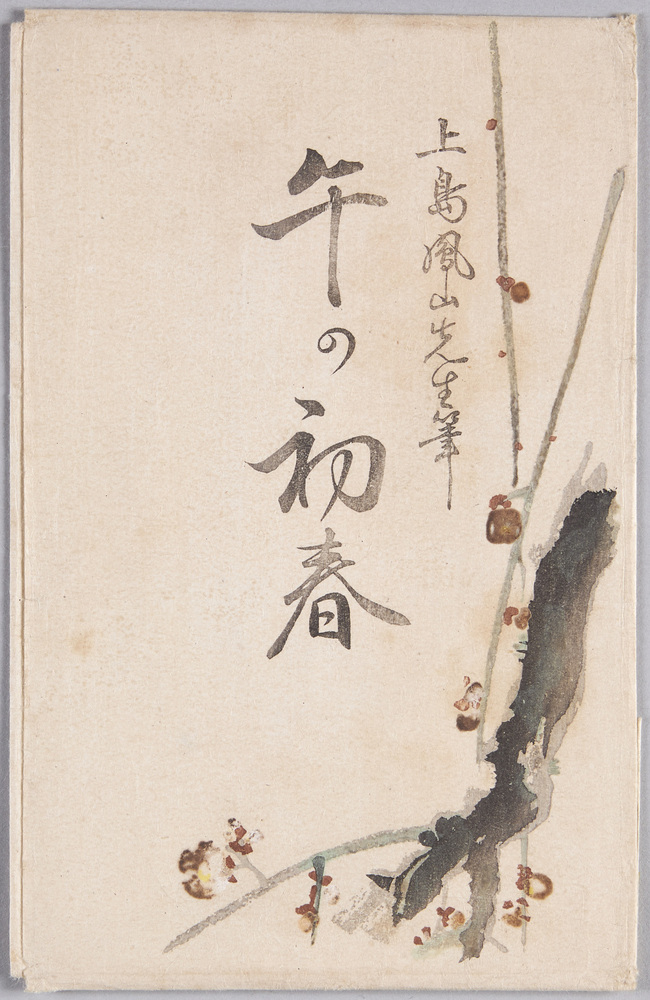 上島鳳山先生筆
午の初春